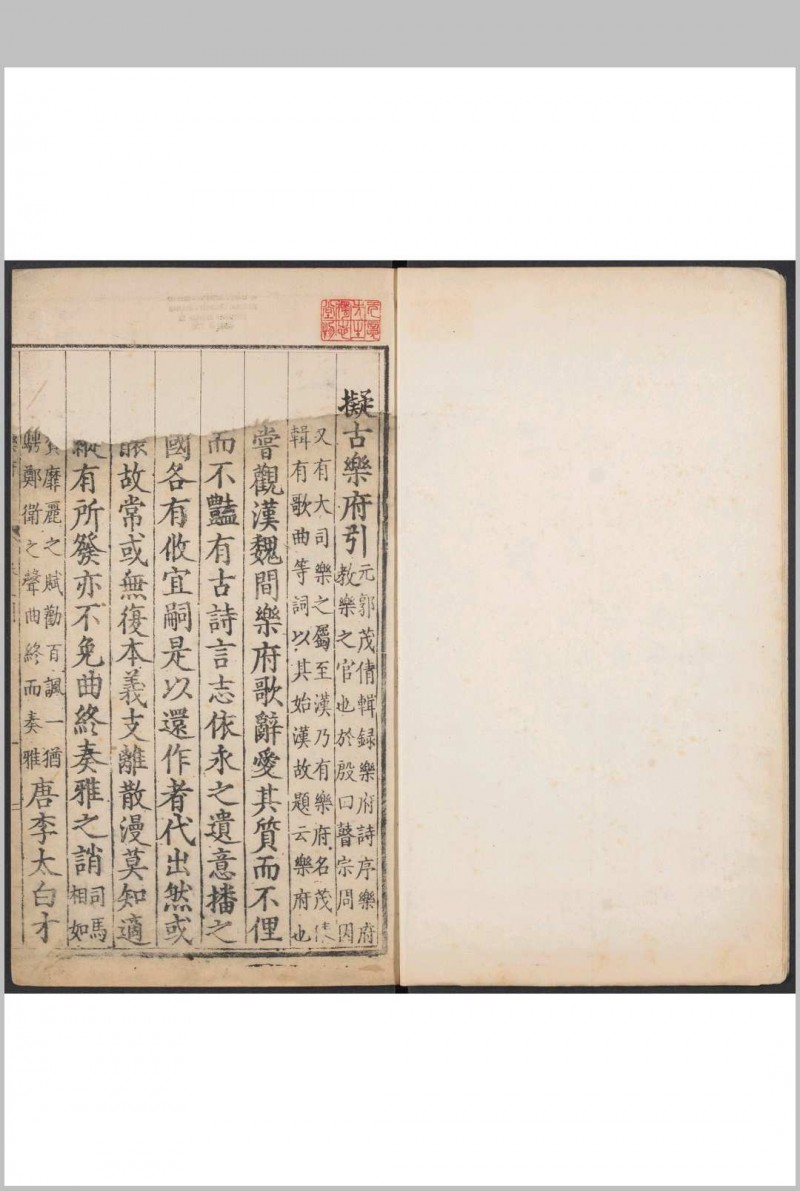 无竟
先生
獨志
堂物
擬古樂府引
元郭茂倩輯録樂府詩序樂府
教樂之官也於殷曰瞽宗周因
又有大司樂之屬至漢乃有樂府名茂
輯有歌曲等詞以其始漢故題云樂府也
嘗觀漢魏間樂府歌辭愛其質而不俚
而不豔有古詩言志依永之遺意播之
國各有攸宜嗣是以還作者代出然或
故常或無復本義支離散漫莫知適
縱有所發亦不免曲終奏雅之誚
司馬
相如
靡麗之賦勸百諷一猶
騁鄭衛之聲曲終而奏雅
唐李太白才